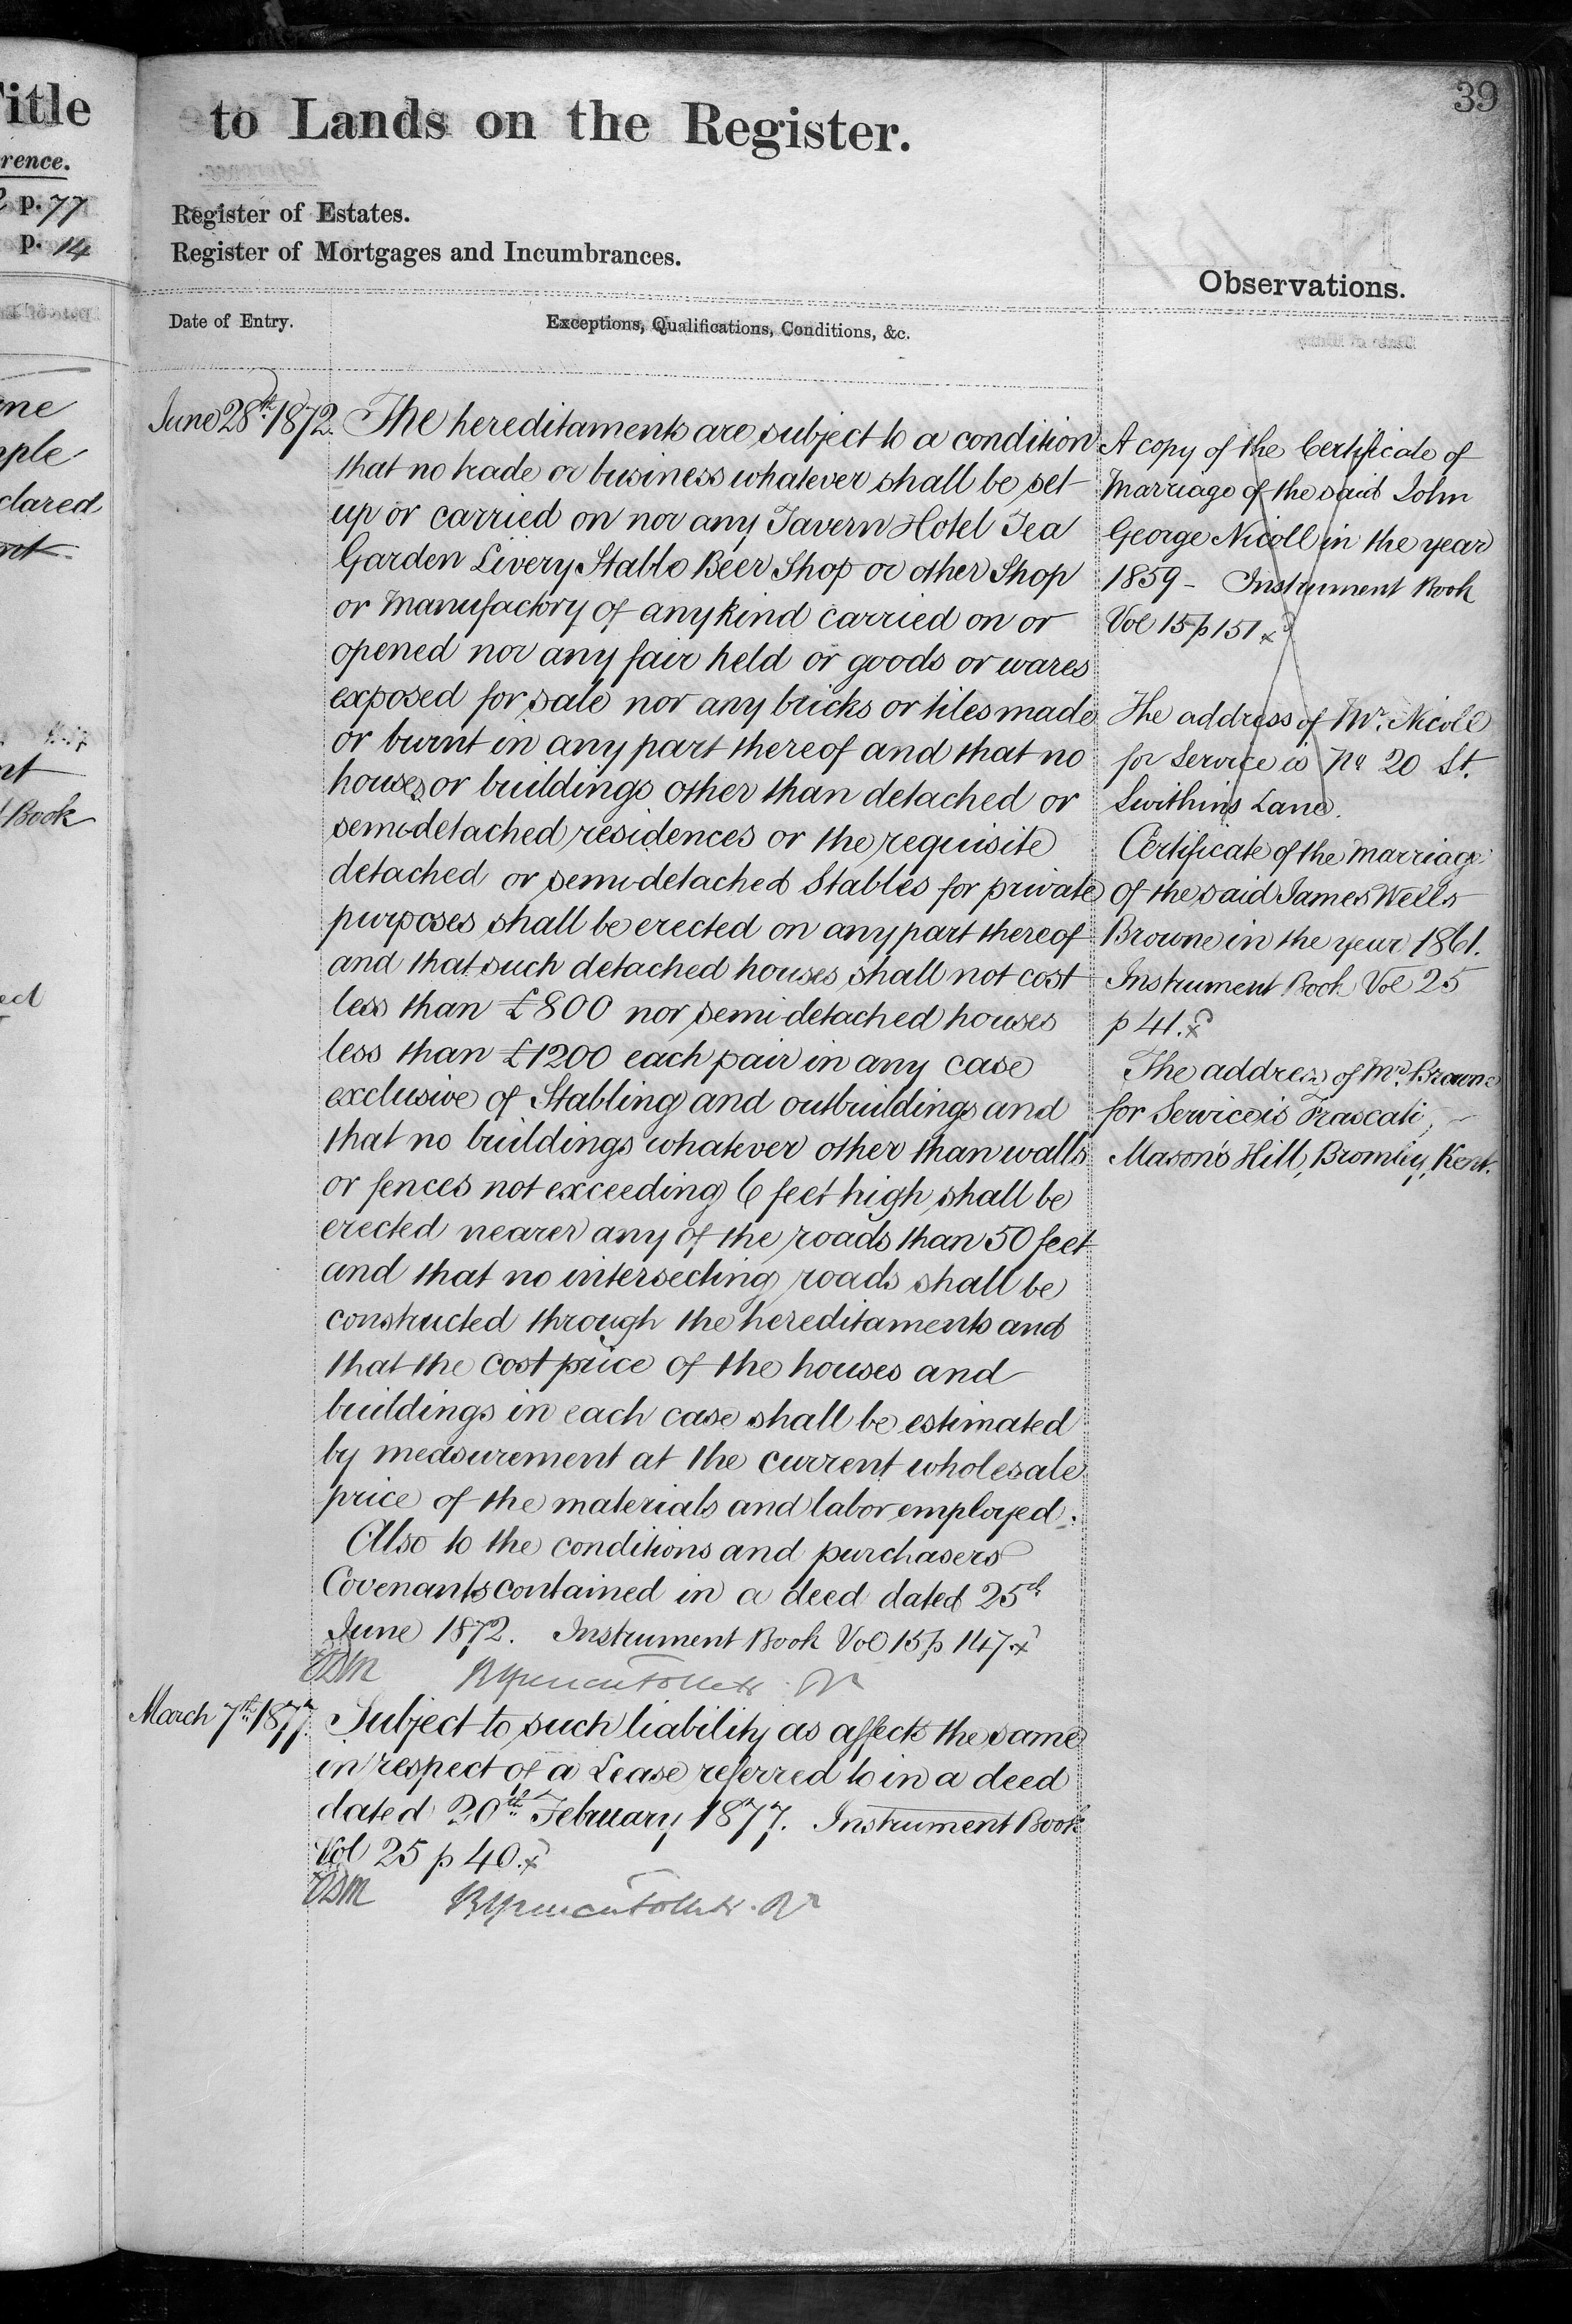 39
to Lands on the Register.
Register of Estates.
Register of Mortgages and Incumbrances.
Date of Entry.
Exceptions, Qualifications, Conditions, &c.
June 28th. 1872.
The hereditaments are subject to a condition
that no trade or business whatever shall be set
up or carried on nor any Tavern Hotel Tea
Garden Livery Stable Beer Shop or other Shop
or Manufactory of any kind carried on or
opened nor any fair held or goods or wares
exposed for sale nor any bricks or tiles made
or burnt in any part thereof and that no
houses or buildings other than detached or
semi-detached residences or the requisite
detached or semi-detached Stables for private
purposes shall be erected on any part thereof
and that such detached houses shall not cost
less than £800 nor semi-detached houses
less than £1200 each pair in any case
exclusive of Stabling and outbuildings and
that no buildings whatever other than walls
or fences not exceeding 6 feet high shall be
erected nearer any of the roads than 50 feet
and that no intersecting roads shall be
constructed through the hereditaments and
that the cost price of the houses and
buildings in each case shall be estimated
by measurement at the current wholesale
price of the materials and labor employed.
Also to the conditions and purchasers
Covenants contained in a deed dated 25th
June 1872. Instrument Book Vol 15 p 147.
March 7th. 1877.
Subject to such liability as affects the same
in respect of a Lease referred to in a deed
dated 20th. February 1877. Instrument Book
Vol 25 p 40.
Observations.
A copy of the Certificate of
Marriage of the said John
George Nicoll in the year
1859 - Instrument Book
Vol 15 p 151
The address of Mr. Nicoll
for Service is No 20 St.
Swithins Lane.
Certificate of the Marriage
of the said James Wells
Browne in the year 1861.
Instrument Book Vol 25
p 41.
The address of Mr. Browne
for Service is Frascati,
Mason's Hill, Bromley, Kent.
Title
rence.
p. 77
p. 14
clared
Book